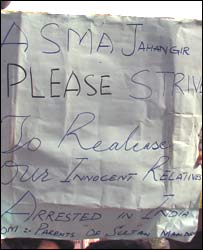 ASMA JAHANGIR
PLEASE STRIV
To Realease
Our Innocent Relatives
Arrested in India
OM :- Parents of Sultan